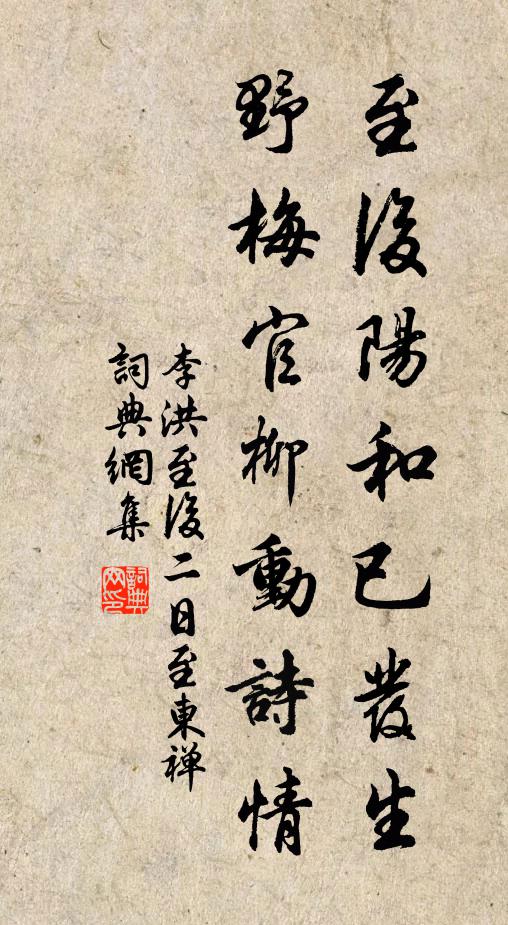 至後陽和已發生
野梅官柳動詩情
李洪至後二日至東禅
詞典網集
詞典
网印